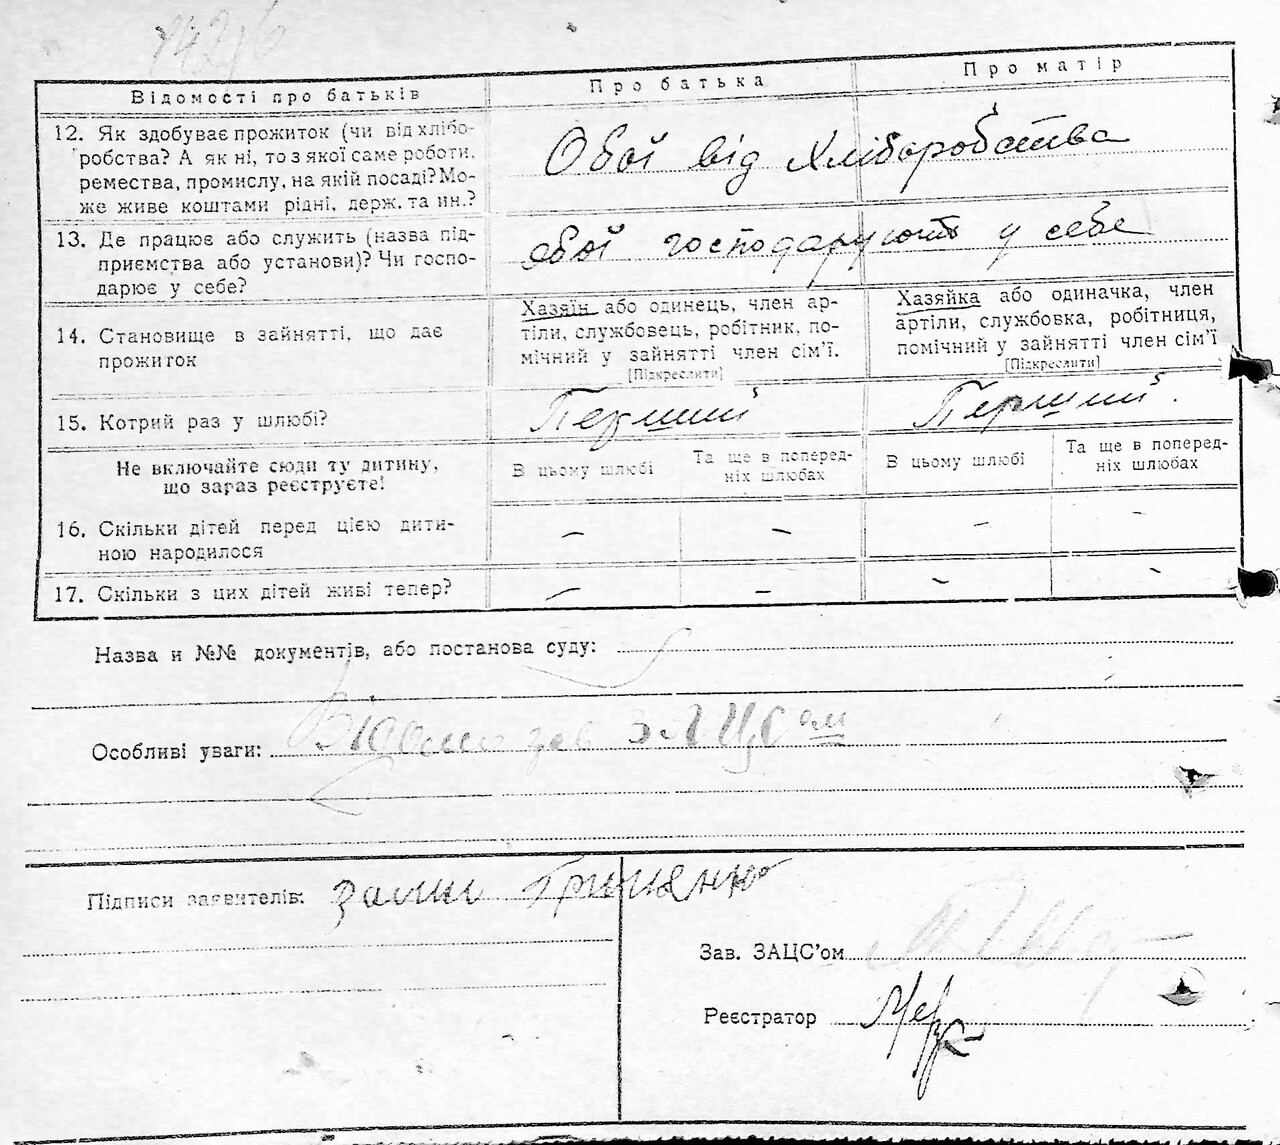 Відомості про батьків
Про батька
Про матір
12. Як здобуває прожиток (чи від хлібо-
робства? А як ні, то з якої саме роботи,
ремества, промислу, на якій посаді? Мо-
же живе коштами рідні, держ. та ин.?
Обої від хліборобства
13. Де працює або служить (назва під-
приємства або установи)? Чи госпо-
дарює у себе?
обої господарують у себе
14. Становище в зайнятті, що дає
прожиток
Хазяїн або одинець, член ар-
тіли, службовець, робітник, по-
мічний у зайнятті член сім'ї.
[Підкреслити]
Хазяйка або одиначка, член
артіли, службовка, робітниця,
помічний у зайнятті член сім'ї
[Підкреслити]
15. Котрий раз у шлюбі?
Перший
Перший.
Не включайте сюди ту дитину,
що зараз реєструєте!
В цьому шлюбі
Та ще в поперед-
ніх шлюбах
В цьому шлюбі
Та ще в поперед-
ніх шлюбах
16. Скільки дітей перед цією дити-
ною народилося
– – – –
17. Скільки з цих дітей живі тепер?
– – – –
Назва и №№ документів, або постанова суду:
Особливі уваги:
Підписи заявителів:
Зав. ЗАЦС'ом
Реєстратор